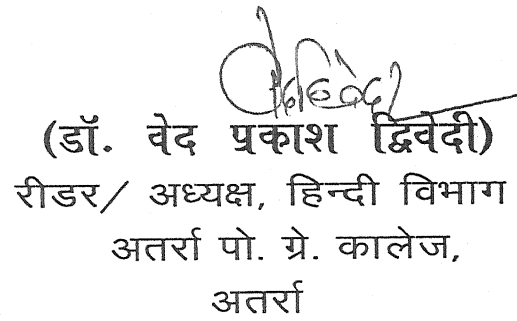 (डॉ. वेद प्रकाश द्विवेदी)
रीडर/ अध्यक्ष, हिन्दी विभाग
अतर्रा पो. ग्रे. कालेज,
अतर्रा